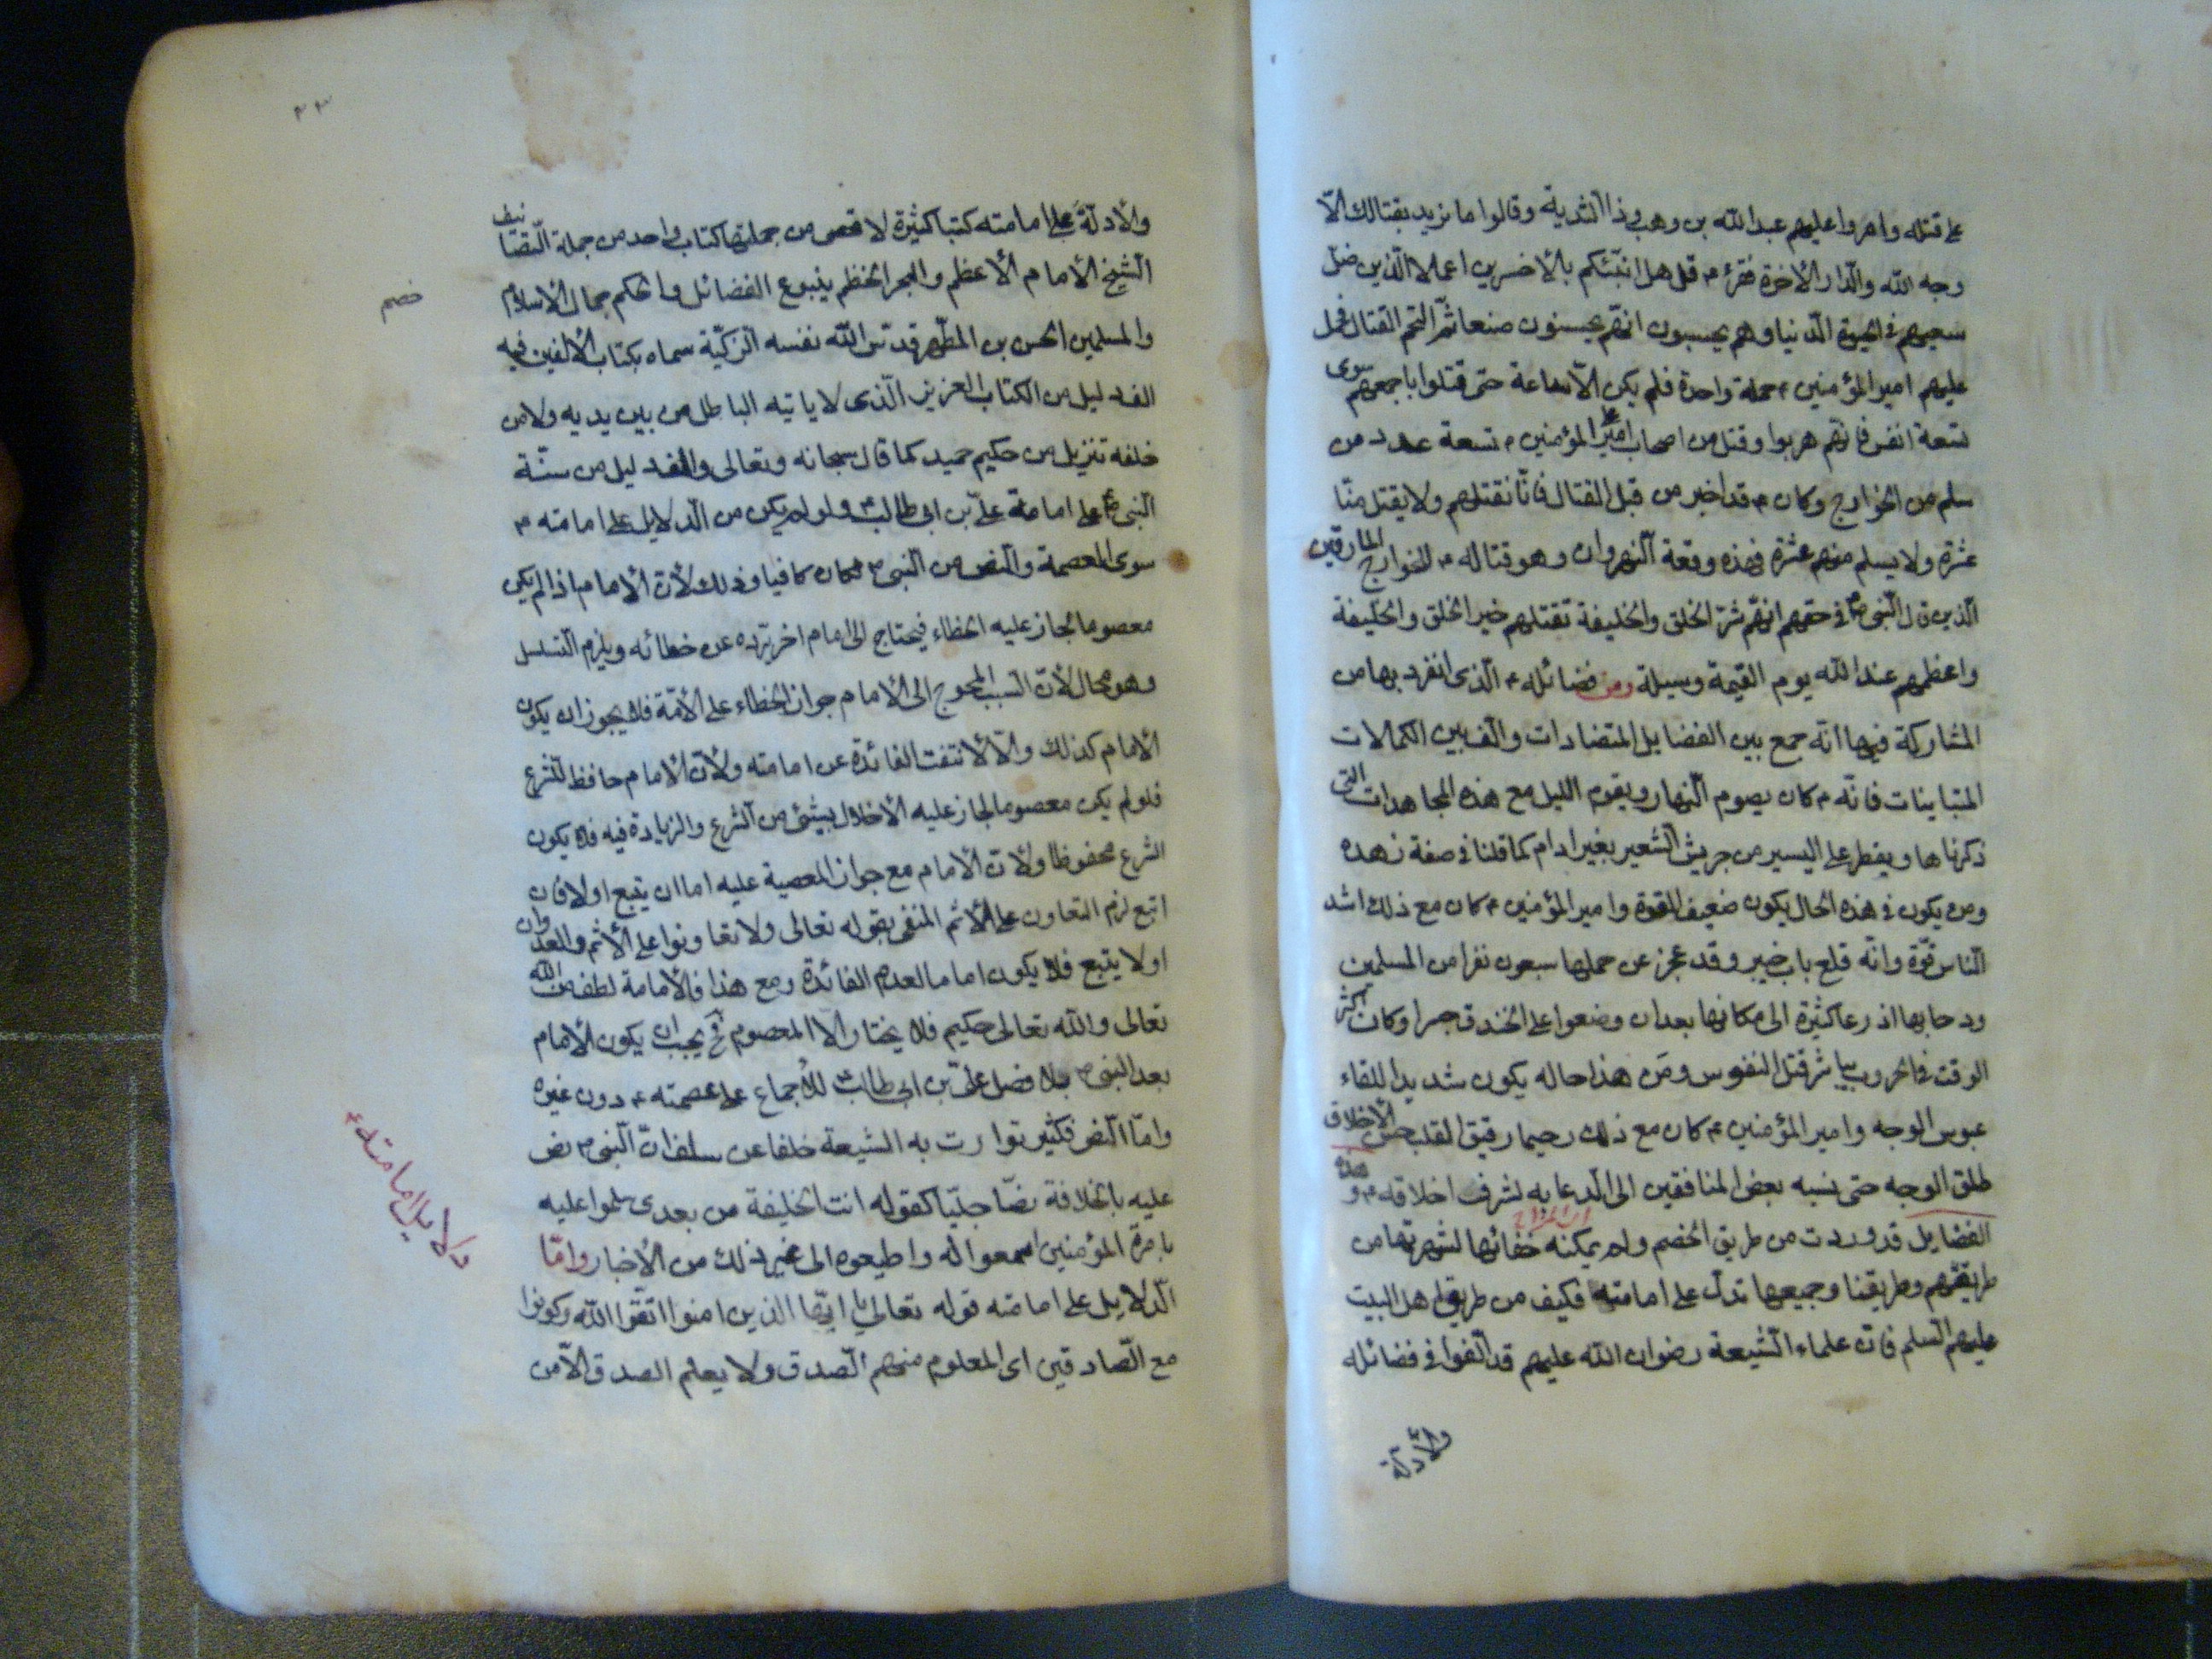 على قتله وامروا عليهم عبد الله بن وهب وذا الثدية وقالوا ما نريد بقتالك الّا
وجه الله والدّار الأخرة فقرء ۴ قل هل انبّئكم بالأخسرين اعمالا الّذين ضلّ
سعيهم فى الحيوة الدّنيا وهم يحسبون انّهم يحسنون صنعا ثمّ التحم القتال فحمل
عليهم امير المؤمنين ۴ حملة واحدة فلم يكن الّا ساعة حتى قتلوا باجمعهم سوى
تسعة انفس فانّهم هربوا وقتل من اصحاب امير المؤمنين ۴ تسعة عدد من
سلم من الخوارج وكان ۴ قد اخبر من قبل القتال فانّا نقتلهم ولا يقتل منّا
عشرة ولا يسلم منهم عشرة فهذه وقعة النّهروان وهو قتاله ۴ للخوارج المارقين
الّذين قال النّبى ص فى حقهم انّهم شرّ الخلق والخليفة تقتلهم خير الخلق والخليفة
واعظمهم عند الله يوم القيمة وسيلة ومن فضائله ۴ الّذى انفرد بها من
المشاركة فيها انّه جمع بين الفضايل المتضادات والّف بين الكمالات
المتباينات فانّه ۴ كان يصوم النّهار ويقوم الليل مع هذه المجاهدات التى
ذكرناها ويفطر على اليسير من جريش الشّعير بغير ادام كما قلنا فى صفة زهده
ومن يكون فى هذه الحال يكون ضعيف القوة وامير المؤمنين ۴ كان مع ذلك اشد
النّاس قوّة وانّه قلع باب خيبر وقد عجز عن حملها سبعون نفرا من المسلمين
ودحا بها اذرعا كثيرة الى مكانها بعد ان وضعوا على الخندق جسرا وكان اكثر
الوقت فى الحروب يباشر قتل النفوس ومَن هذا حاله يكون شديد اللقاء
عبوس الوجه وامير المؤمنين ۴ كان مع ذلك رحيما رقيق القلب حسن الأخلاق
طلق الوجه حتى نسبه بعض المنافقين الى الّدعابه لشرف اخلاقه ۴ و هذه
اى المزاح
الفضايل قد وردت من طريق الخصم ولم يمكنه خفائها لشهرتها من
طريقهم وطريقنا وجميعها تدلّ على امامته فكيف من طريق اهل البيت
عليهم السّلم فانّ علماء الشّيعة رضوان الله عليهم قد الّفوا فى فضائله
والأدلّة
۳۳
والأدلّة على امامته كتبا كثيرة لا تحصى من جملتها كتاب واحد من جملة التّصانيف
الشّيخ الأمام الأعظم والبحر الخظم ينبوع الفضائل والحكم جمال الأسلام
خضم
والمسلمين الحسن بن المطّهر قدّس الله نفسه الزّكيّة سماه بكتاب الألفين فيه
الف دليل من الكتاب العزيز الّذى لا ياتيه الباطل من بين يديه ولا من
خلفه تنزيل من حكيم حميد كما قال سبحانه وتعالى والف دليل من سنّة
النّبى ص على امامة علىّ بن ابى طالب ۴ ولو لم يكن من الّدلايل على امامته ۴
سوى العصمة والنّص من النّبى ص لكان كافيا وذلك لأنّ الأمام اذا لم يكن
معصوما لجاز عليه الخطاء فيحتاج الى امام اخر يردّه عن خطائه ويلزم التّسلسل
وهو محال لأنّ السّبب المحوج الى الأمام جواز الخطاء على الأمّة فلا يجوز ان يكون
الأمام كذلك والّا لأنتفت الفائدة عن امامته ولأنّ الأمام حافظ للشّرع
فلو لم يكن معصوما لجاز عليه الأخلال بشئ من الشّرع والزيادة فيه فلا يكون
الشرع محفوظا ولأنّ الأمام مع جواز المعصية عليه اما ان يتبع او لا فان
اتبع لزم التعاون على الأثم المنفى بقوله تعالى ولا تعاونوا على الأثم والعدوان
او لا يتبع فلا يكون اماما لعدم الفائدة ومع هذا فالأمامة لطف من الله
تعالى والله تعالى حكيم فلا يختار الا المعصوم فح يجب ان يكون الأمام
بعد النبى ص بلا فصل علىّ بن ابى طالب ۴ للأجماع على عصمته ۴ دون غيره
وامّا النّص فكثير تواترت به الشيعة خلفا عن سلف انّ النّبى ص نص
عليه بالخلافة نصّا جليّا كقوله انت الخليفة من بعدى سلموا عليه
بامرة المؤمنين اسمعوا له واطيعوه الى غير ذلك من الأخبار وامّا
دلايل امامته ۴
الّدلايل على امامته قوله تعالى يا ايّها الذين امنوا اتّقوا الله وكونوا
مع الصّادقين اى المعلوم منهم الصّدق ولا يعلم الصدق الّا من